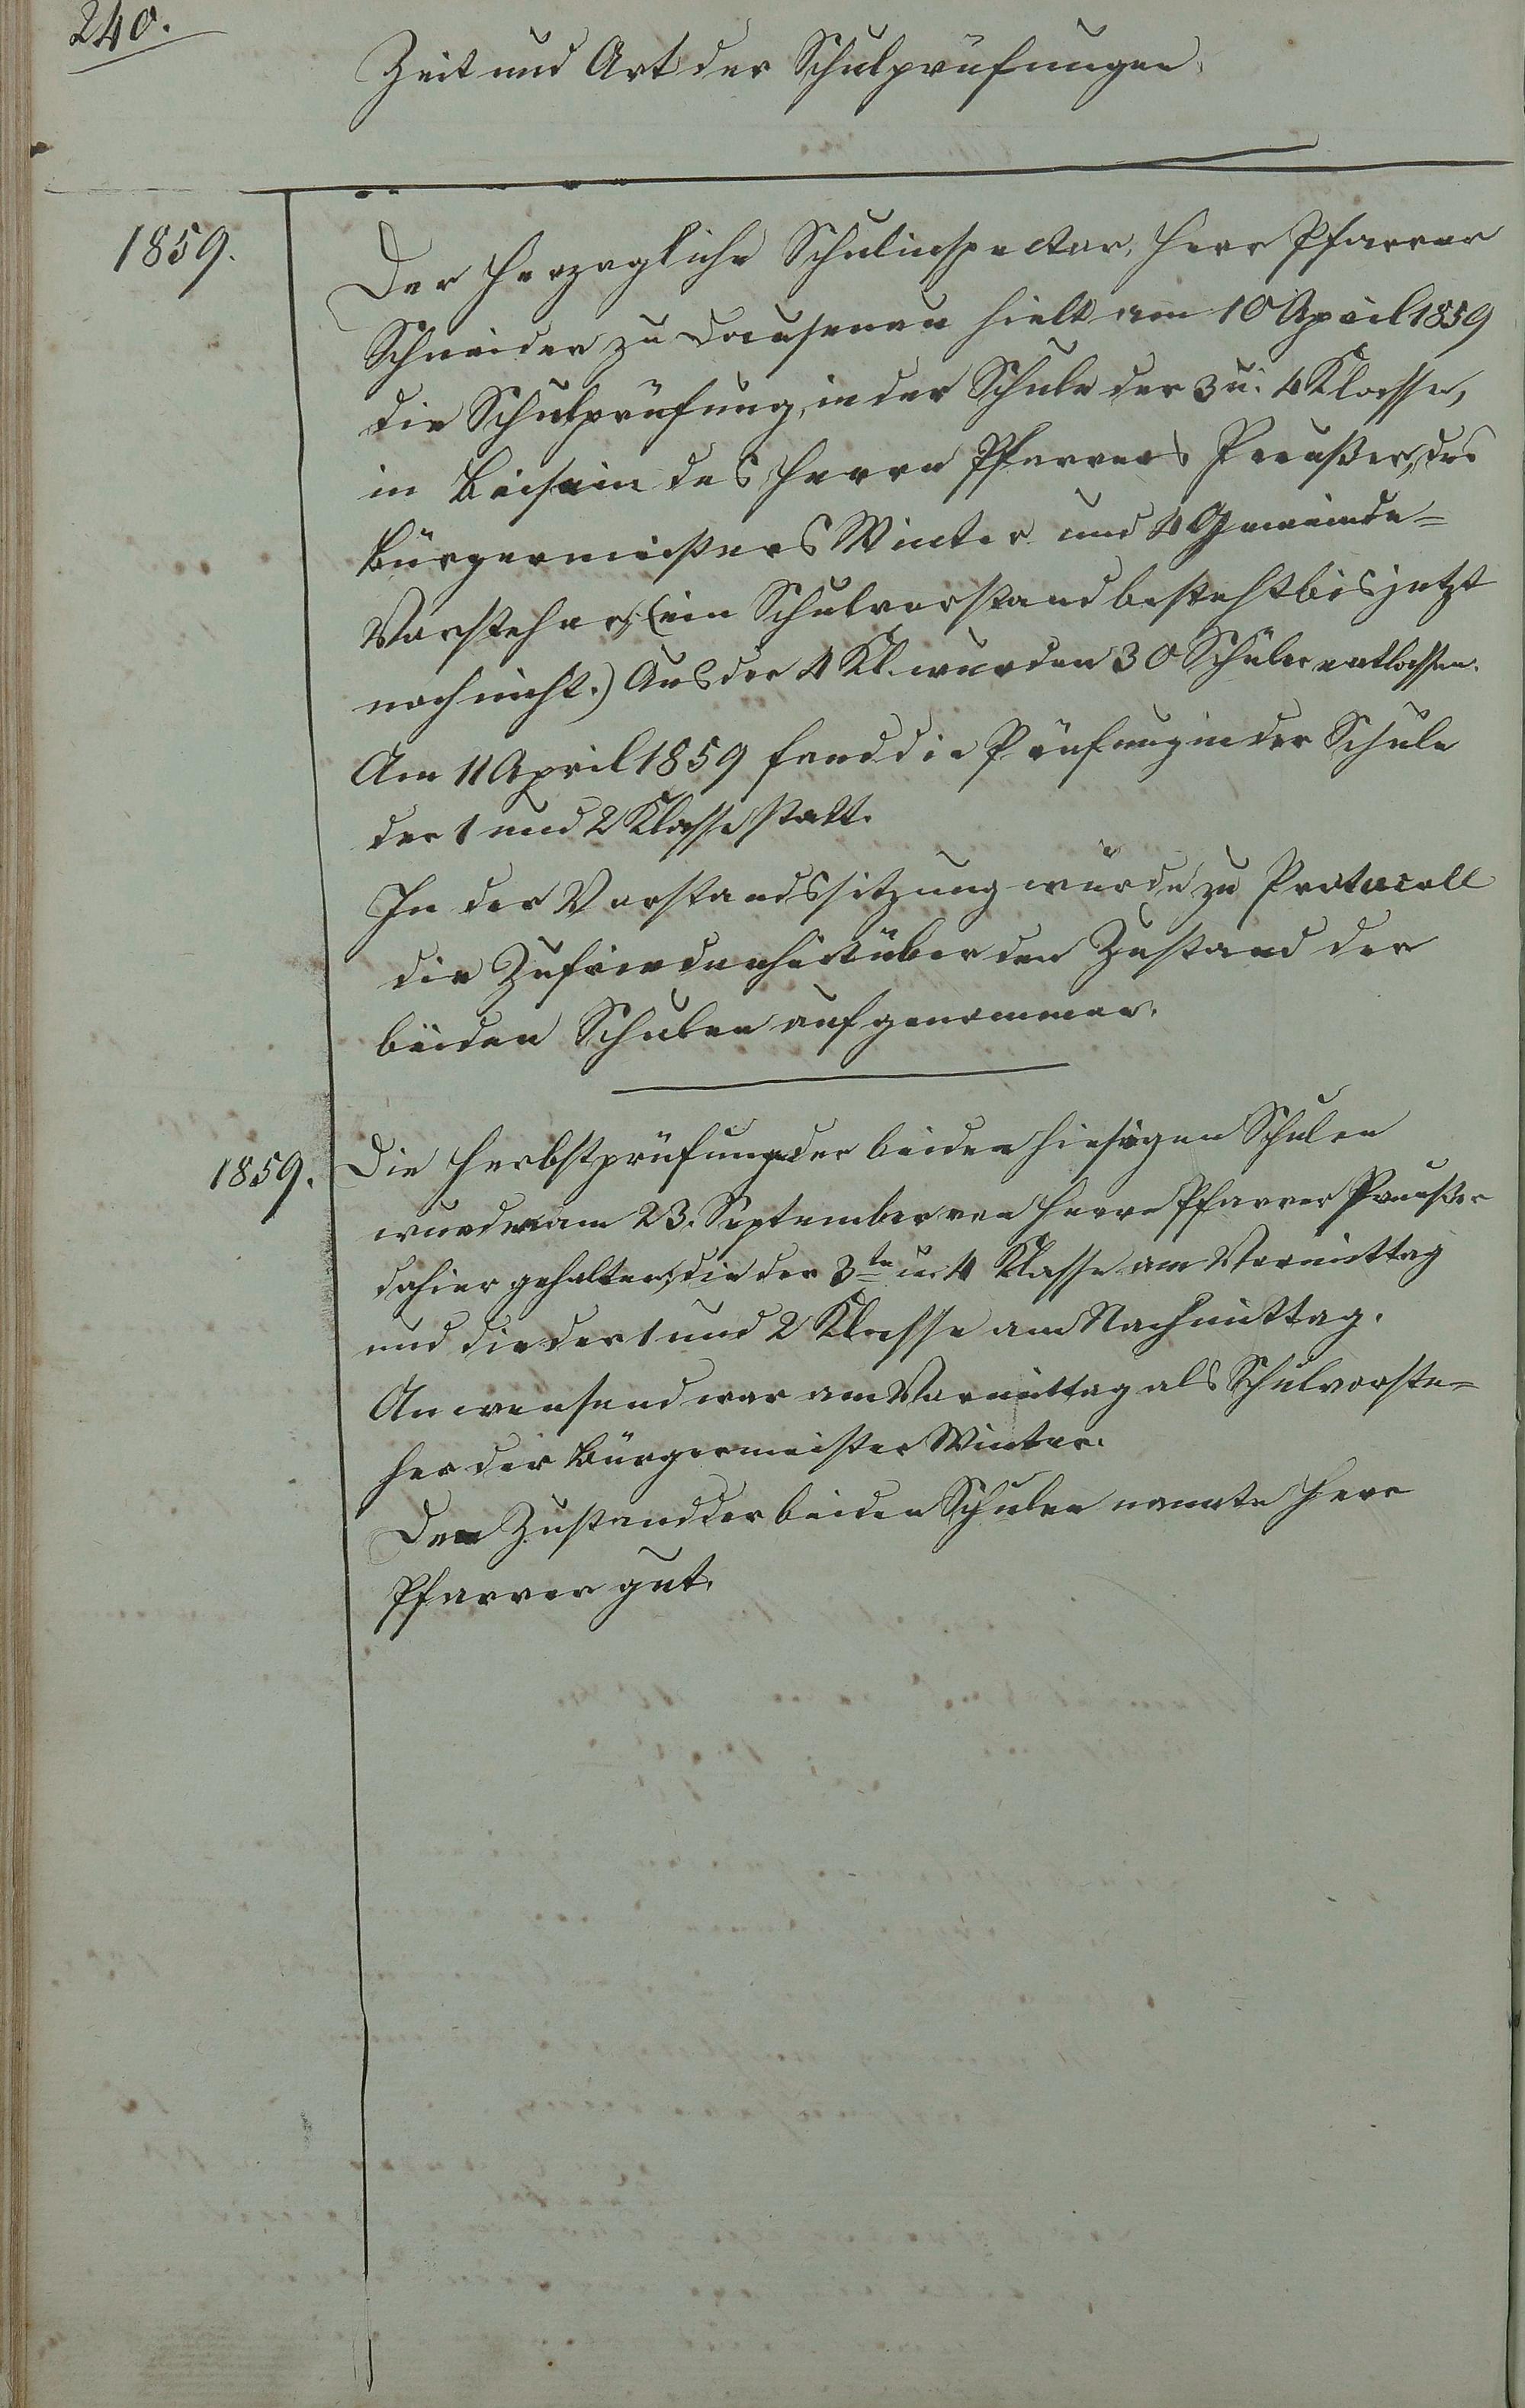 240.
Zeit und Art der Schulprüfungen.
1859.
Der Herzogliche Schulinspector, Herr Pfarrer
Schneider zu Dausenau hielt am 10 April 1859
die Schulprüfung, in der Schule der 3 u. 4 Klasse,
in Beisein des Herrn Pfarrers Preußer, des
Bürgermeisters Winter und 4 Gemeinde=
Vorsteher; (ein Schulvorstand besteht bis jetzt
noch nicht.) Aus der 4 Kl. wurden 30 Schüler entlassen.
Am 11 April 1859 fand die Prüfung in der Schule
der 1 und 2 Klasse statt.
In der Vorstandssitzung wurde zu Protocoll
die Zufriedenheit über den Zustand der
beiden Schulen aufgenommen.
1859.
Die Herbstprüfung der beiden hiesigen Schulen
wurden am 23. September von Herrn Pfarrer Preußer
dahier gehalten; die der 3te u. 4 Klasse am Vormittag
und die der 1 und 2 Klasse am Nachmittag.
Anwesend war am Vormittag als Schulvorste=
her der Bürgermeister Winter.
Den Zustand der beiden Schulen nannte Herr
Pfarrer gut.